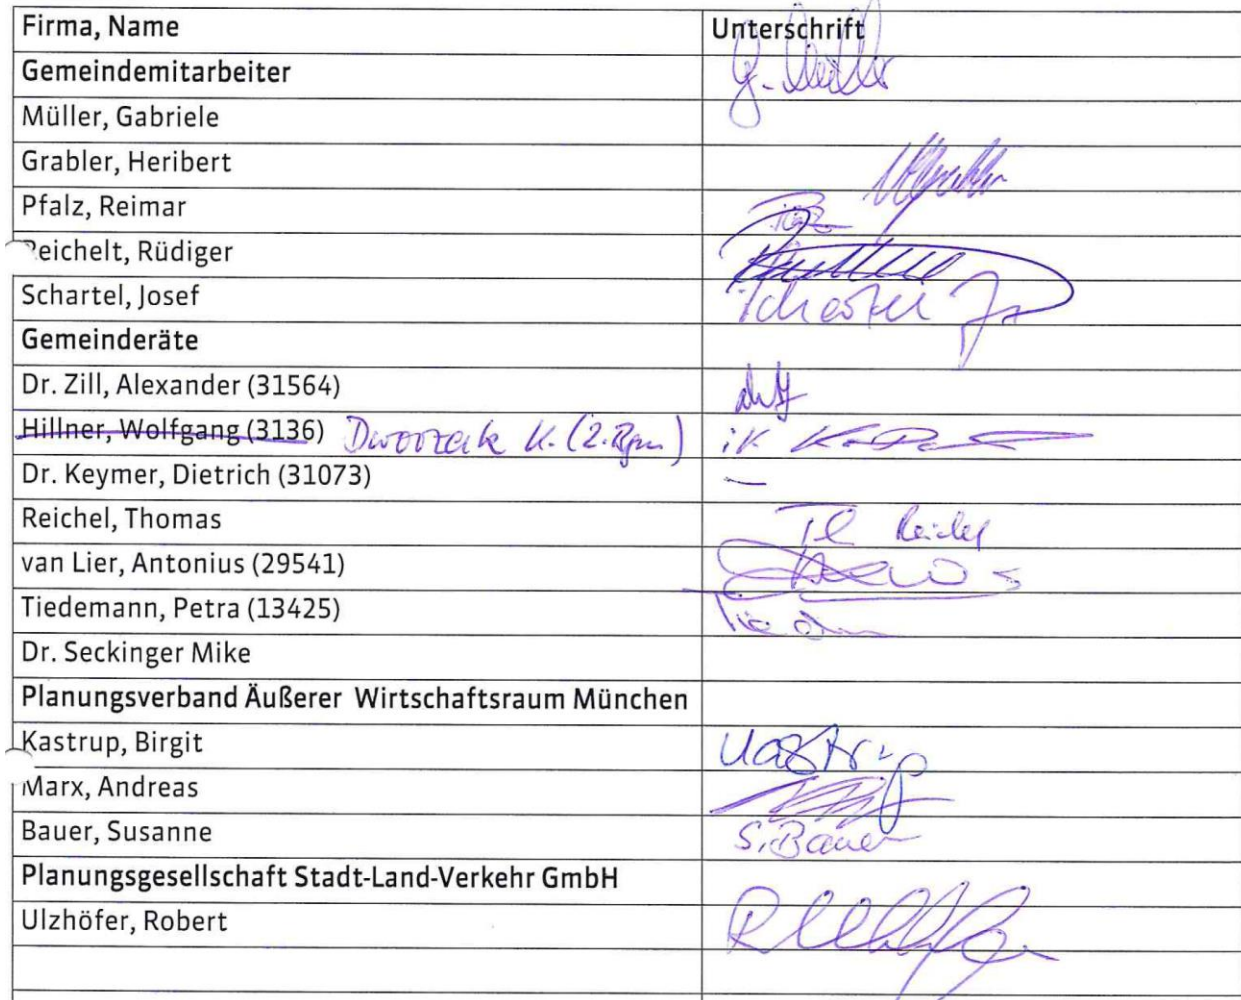 Firma, Name Unterschrift
Gemeindemitarbeiter G. Müller
Müller, Gabriele
Grabler, Heribert
Pfalz, Reimar
Reichelt, Rüdiger
Schartel, Josef
Gemeinderäte
Dr. Zill, Alexander (31564)
Hillner, Wolfgang (3136) Dworzak K. (2. Bgm)
Dr. Keymer, Dietrich (31073) –
Reichel, Thomas
van Lier, Antonius (29541)
Tiedemann, Petra (13425)
Dr. Seckinger Mike
Planungsverband Äußerer Wirtschaftsraum München
Kastrup, Birgit Kastrup
Marx, Andreas
Bauer, Susanne S. Bauer
Planungsgesellschaft Stadt-Land-Verkehr GmbH
Ulzhöfer, Robert